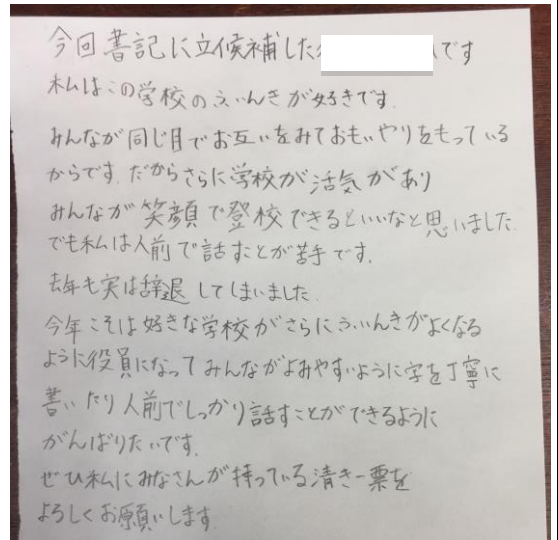 今回書記に立候補した です
私はこの学校のふいんきが好きです.
みんなが同じ目でお互いをみておもいやりをもっている
からです.だからさらに学校が活気があり
みんなが笑顔で登校できるといいなと思いました.
でも私は人前で話すことが苦手です.
去年も実は辞退してしまいました.
今年こそは好きな学校がさらにふいんきがよくなる
ように役員になってみんながよみやすいように字を丁寧に
書いたり人前でしっかり話すことができるように
がんばりたいです.
ぜひ私にみなさんが持っている清き一票を
よろしくお願いします